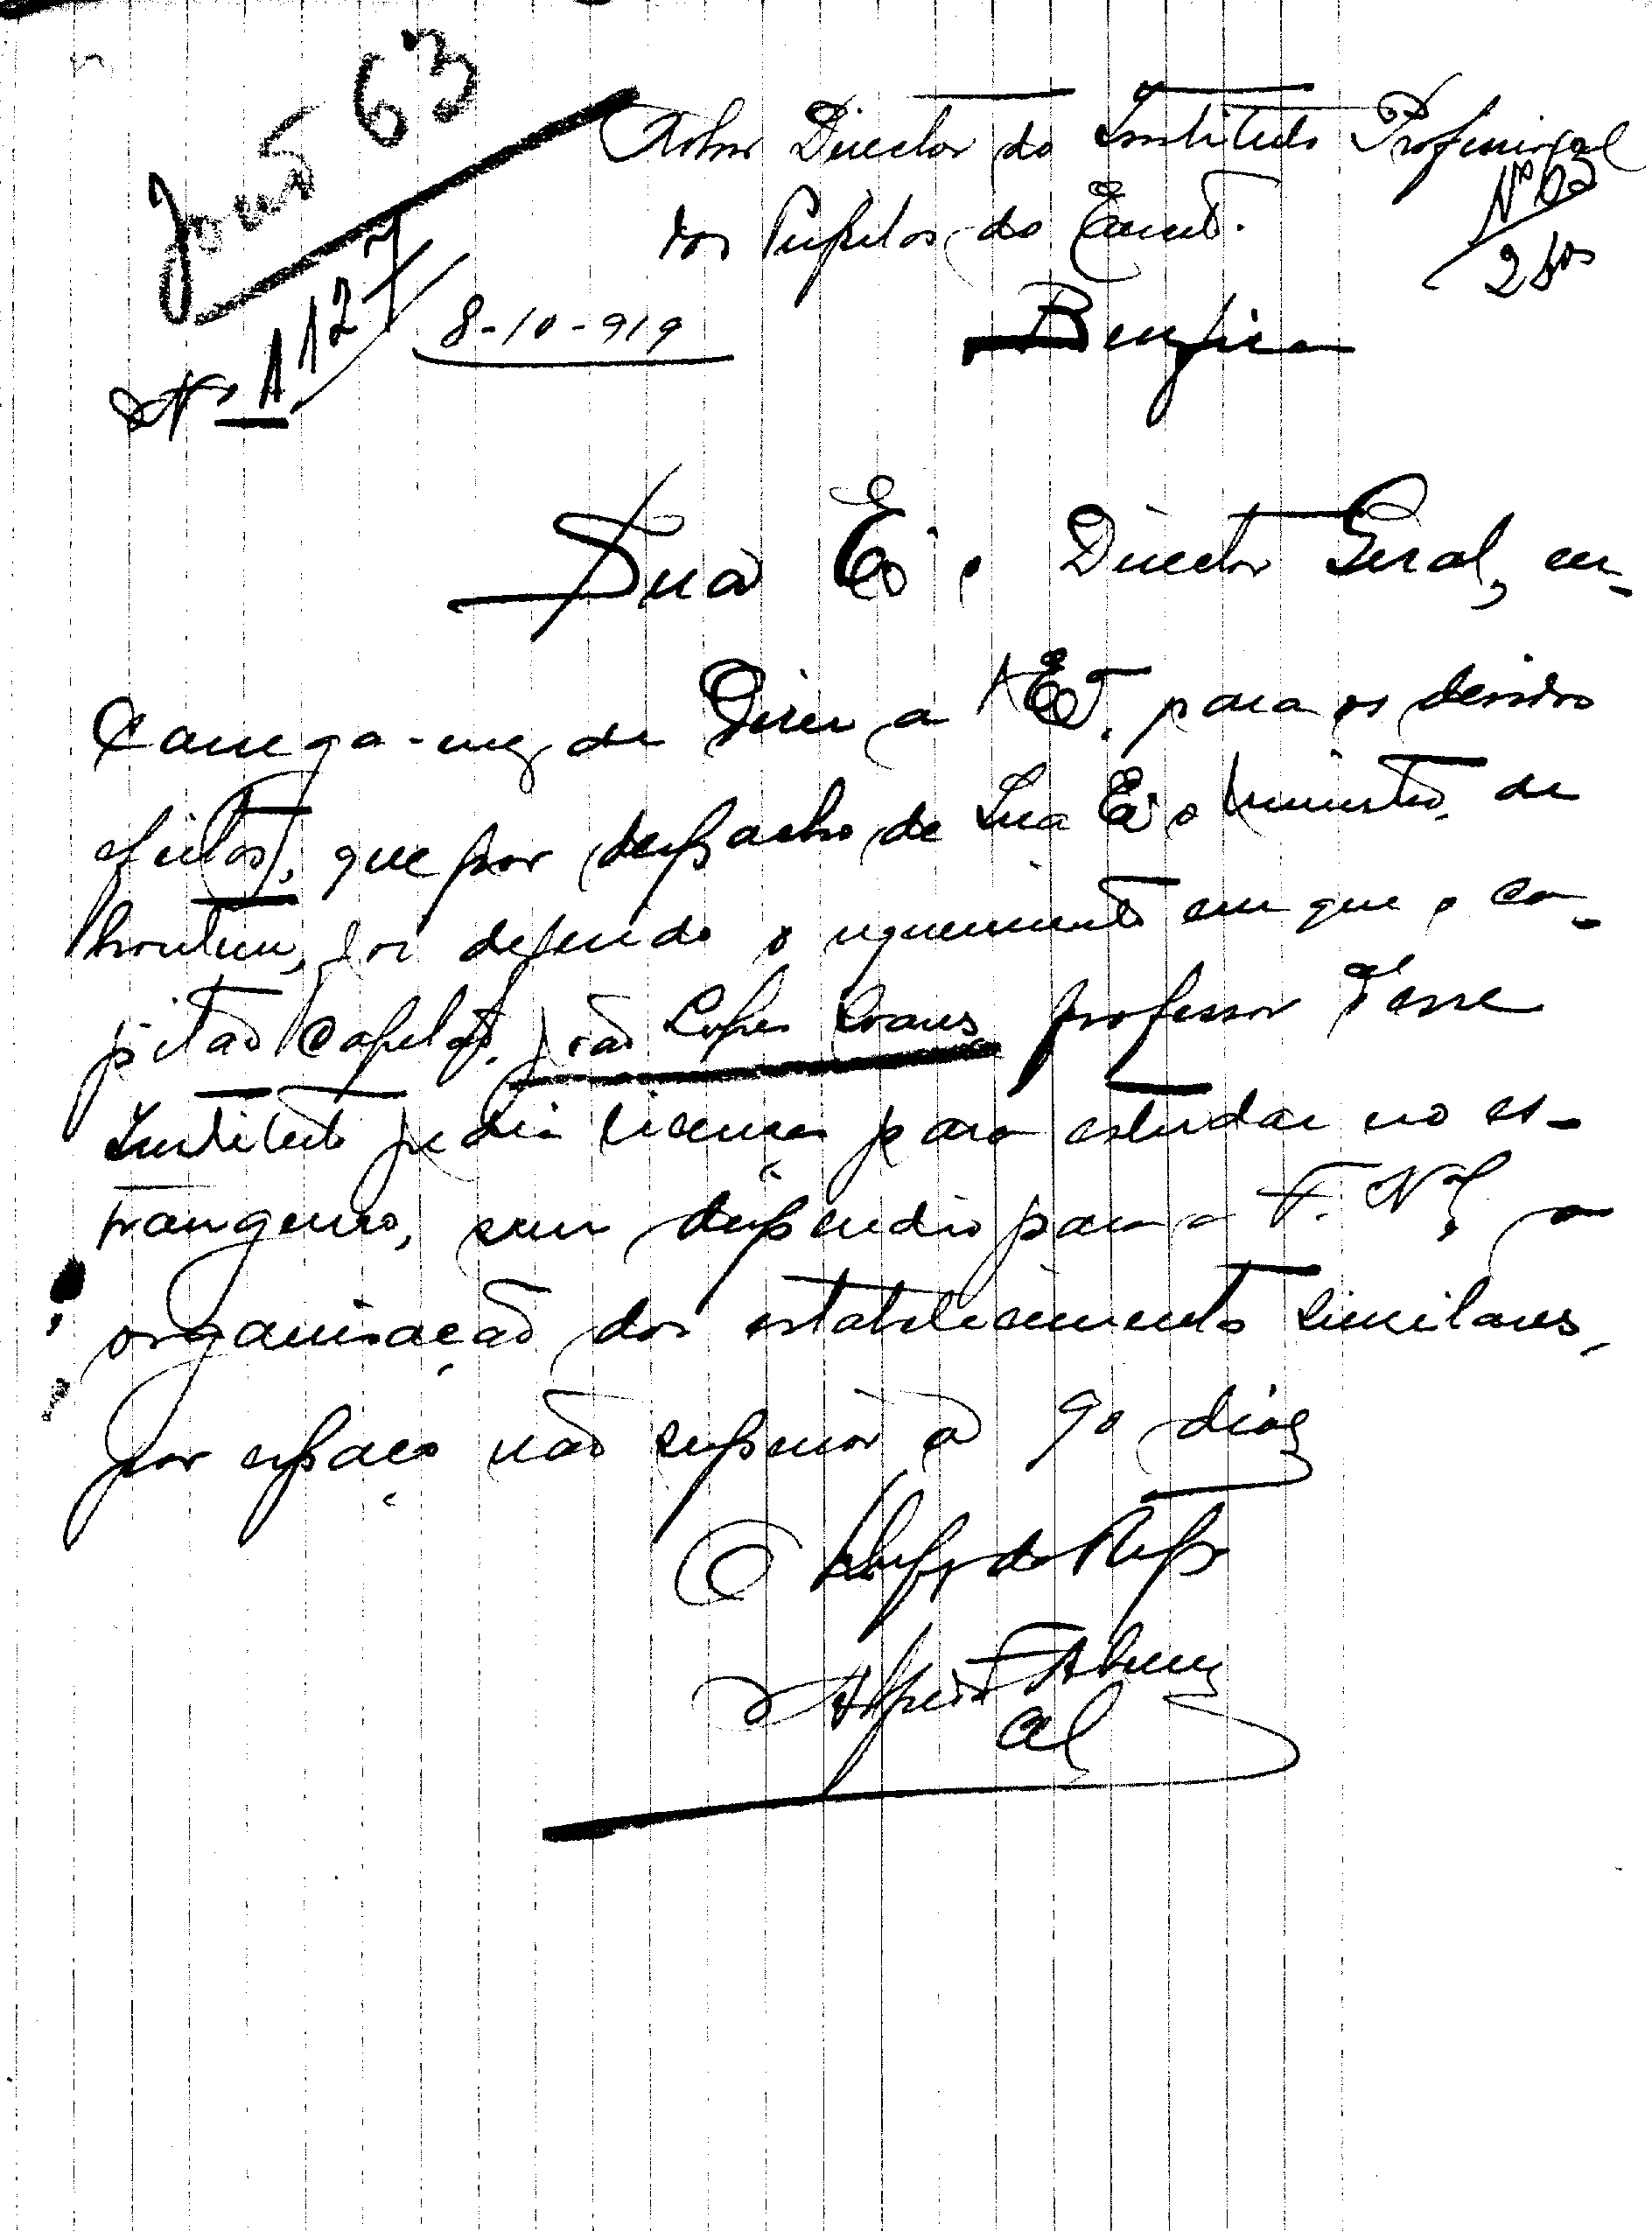 63
Ao Snr Director do Instituto Profissional
dos Pupilos do Exercito.
Nº 63
2 
Nº 1127
8-10-919
Benfica
Sua Exª o Director Geral, en-
carrega-me, de dizer a V. Exª, para os devidos
efeitos, que por despacho de Sua Exª o Ministro, de
hontem, foi deferido o requerimento em que o ca-
pitão Capelão, João Lopes Soares professor d'esse
Instituto pedia licença para estudar no es-
trangeiro, sem dispendio para a F. Nal, a
organisação dos estabelecimentos similares,
por espaço não superior a 90 dias
O Chefe da Repº
Alfredo
Cel